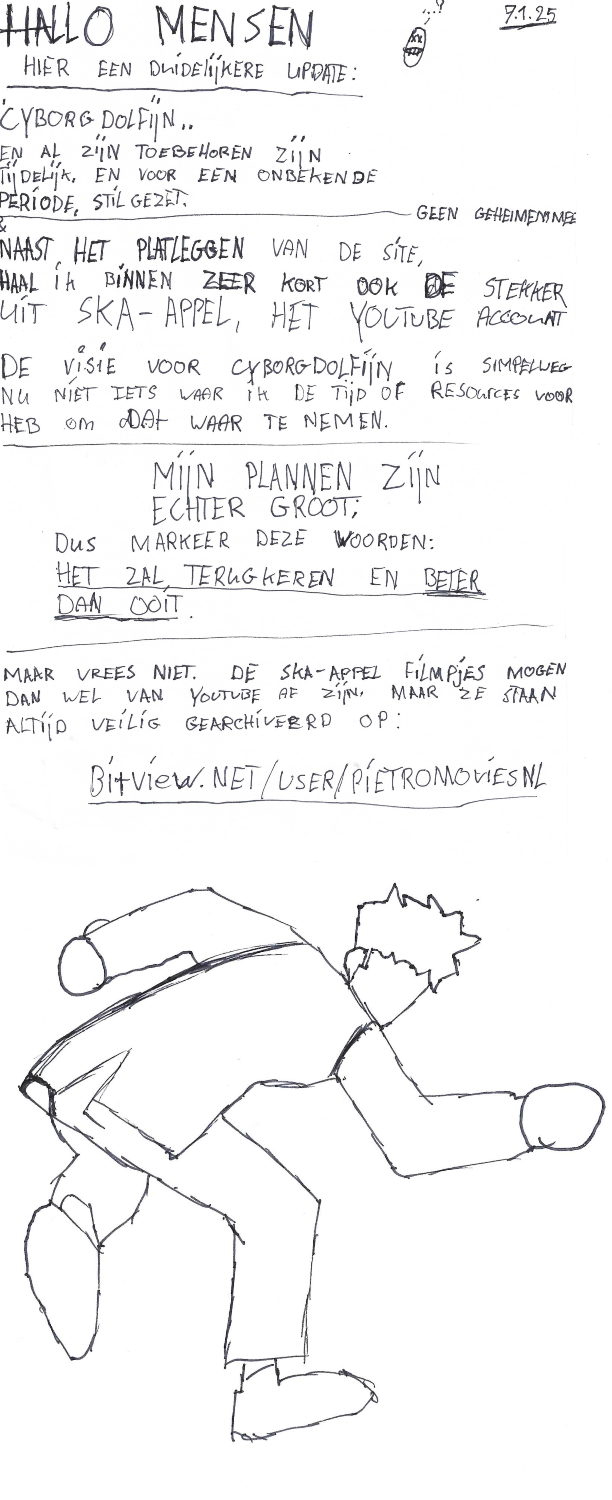 HALLO MENSEN
7.1.25
HIER EEN DUIDELIJKERE UPDATE:
CYBORG DOLFIJN..
EN AL ZIJN TOEBEHOREN ZIJN
TIJDELIJK, EN VOOR EEN ONBEKENDE
PERIODE, STIL GEZET.
GEEN GEHEIMEN MEE
&
NAAST HET PLATLEGGEN VAN DE SITE,
HAAL ik BINNEN ZEER KORT OOK DE STEKKER
UIT SKA-APPEL, HET YOUTUBE ACCOUNT
DE VISIE VOOR CYBORGDOLFIJN is SIMPELWEG
NU NIET IETS WAAR ik DE TIJD OF RESOURCES VOOR
HEB om DAt WAAR TE NEMEN.
MIJN PLANNEN ZIJN
ECHTER GROOT;
DUS MARKEER DEZE WOORDEN:
HET ZAL TERUGKEREN EN BETER
DAN OOIT.
MAAR VREES NIET. DE SKA-APPEL FILMPJES MOGEN
DAN WEL VAN YOUTUBE AF ZIJN, MAAR ZE STAAN
ALTIJD VEILIG GEARCHIVEERD OP:
Bitview.NET/USER/PIETROMOVIESNL